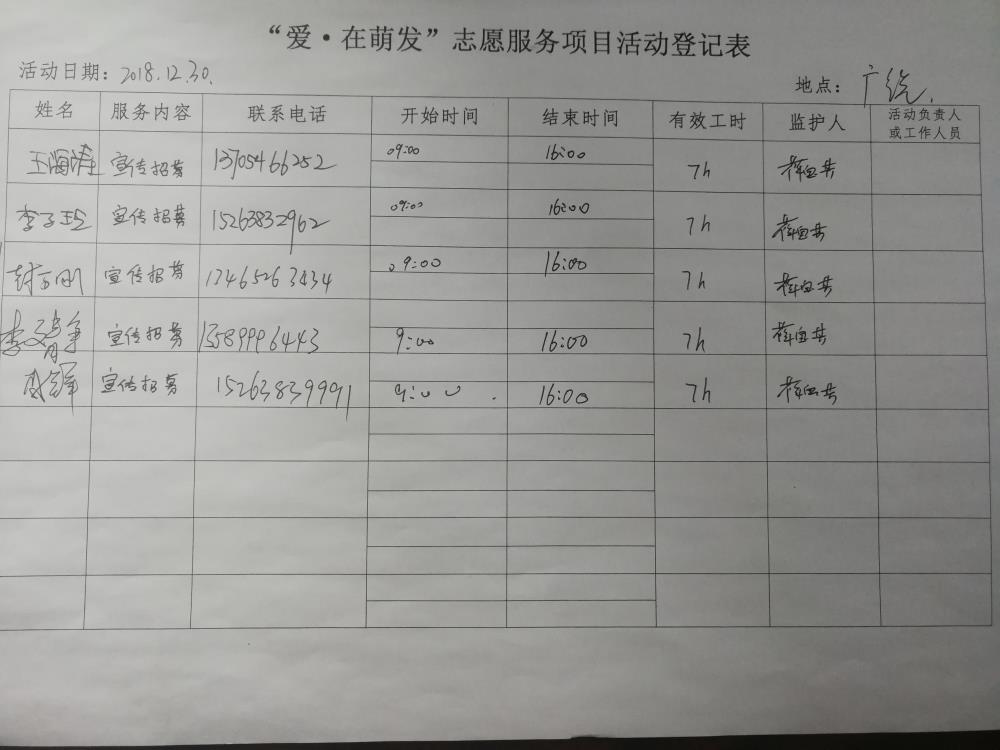 “爱·在萌发”志愿服务项目活动登记表
活动日期：2018.12.30.
地点：广饶.
姓名 服务内容 联系电话 开始时间 结束时间 有效工时 监护人 活动负责人
或工作人员
王海涛 宣传招募 13705466252 09:00 16:00 7h
李子 宣传招募 15263832962 09:00 16:00 7h
封方刚 宣传招募 13465263434 09:00 16:00 7h
李文 宣传招募 13589996443 9:00 16:00 7h
宣传招募 15263839991 9:00 16:00 7h